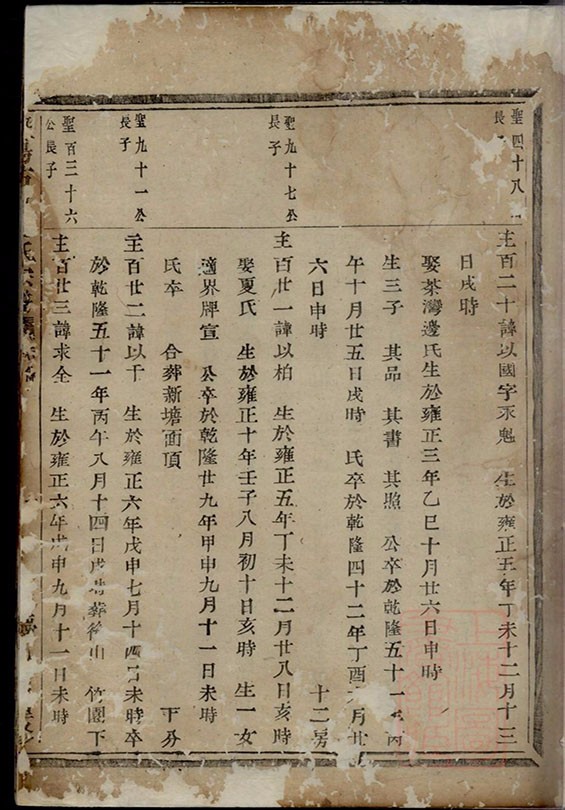 聖四十八
長
主百二十諱以國字永魁　生於雍正五年丁未十二月十三
日戌時
娶茶灣邊氏生於雍正三年乙巳十月廿六日申時
生三子　其品　其書　其照　公卒於乾隆五十一　丙
午十月廿五日戌時　氏卒於乾隆四十二年丁酉　月廿
六日申時　十二房
聖九十七公
長子
主百廿一諱以柏　生於雍正五年丁未十二月廿八日亥時
娶夏氏　生於雍正十年壬子八月初十日亥時　生一女
適界牌宣　公卒於乾隆廿九年甲申九月十一日未時
氏卒　合葬新塘面頂　下分
聖九十一公
長子
主百廿二諱以千　生於雍正六年戊申七月十四日未時卒
於乾隆五十一年丙午八月十四日戌時葬後山　竹園下
聖百三十六
公長子
主百廿三諱求全　生於雍正六年戊申九月十一日未時